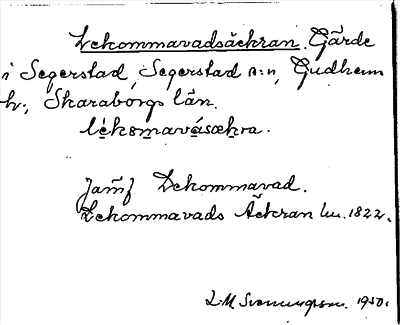 Lekommavadsäckran. Gärde
i Segerstad, Segerstad s:n, Gudhem
h:, Skaraborgs län.
Jämf Lekommavad.
Lekommavads Äckran lm. 1822.
L. M. Svenungsson. 1950.